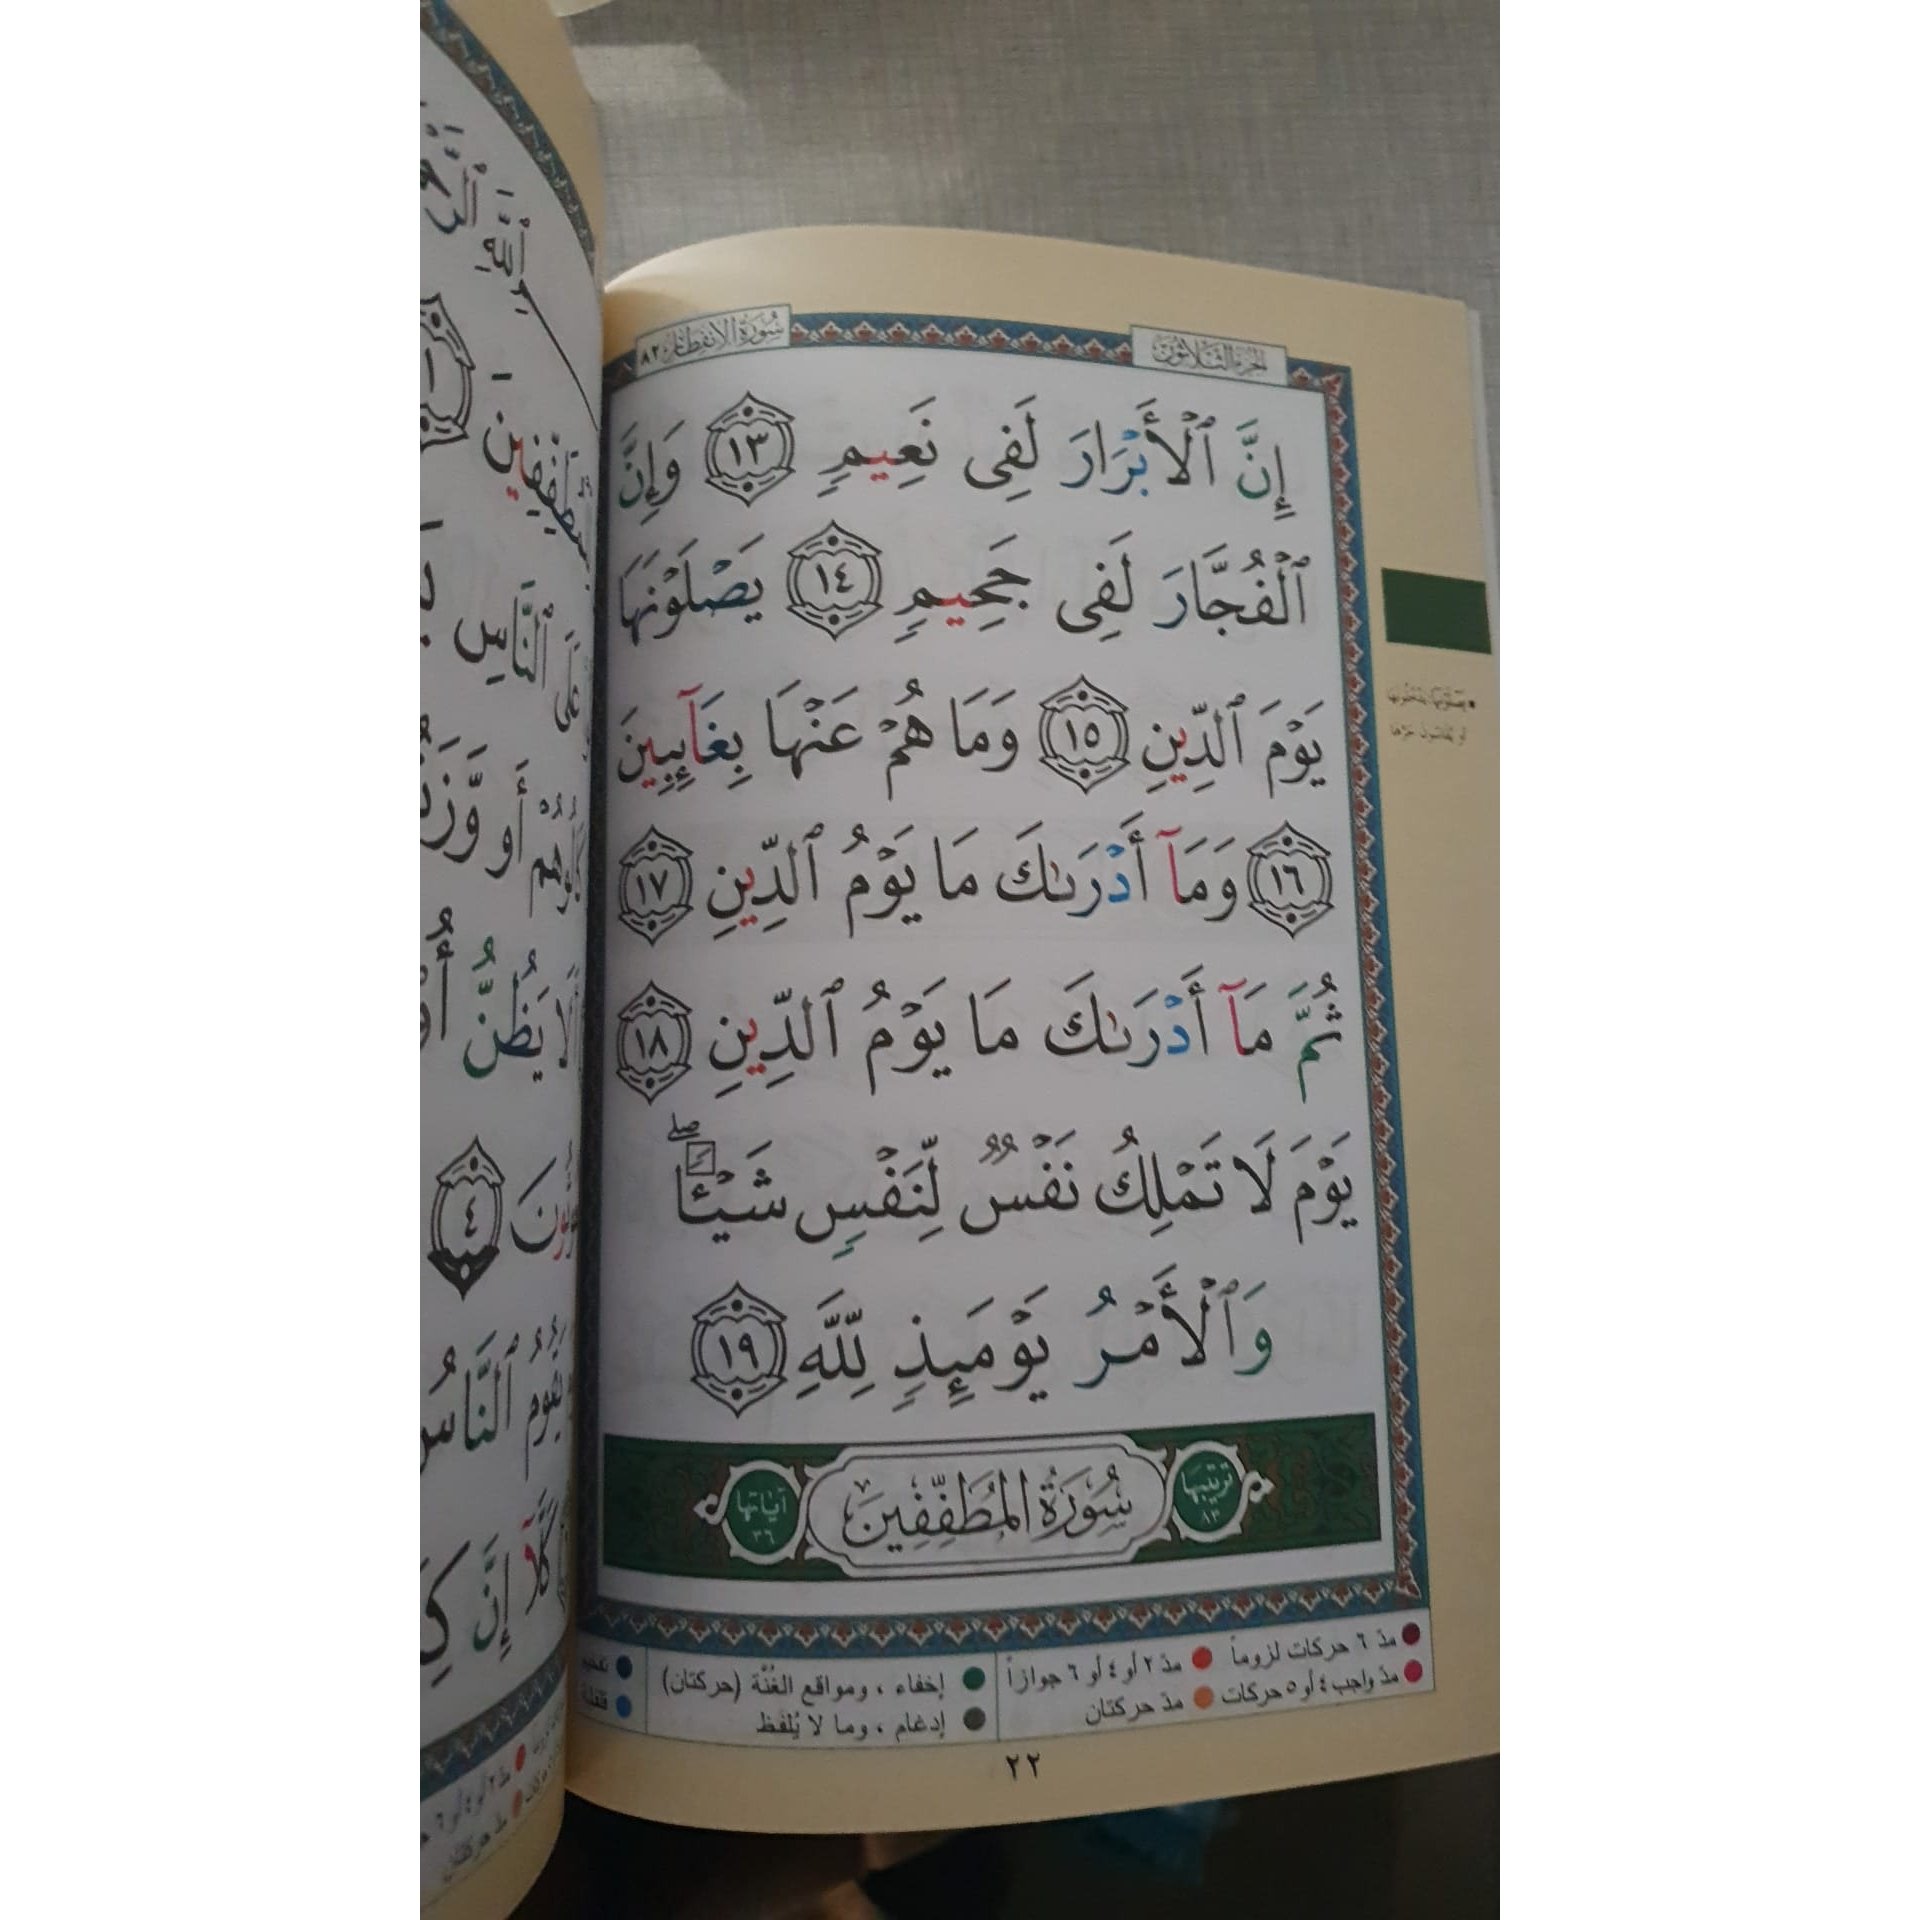 الجزء الثلاثون
سُورَةُ الانفِطَار ٨٢
إِنَّ ٱلْأَبْرَارَ لَفِى نَعِيمٍ ١٣ وَإِنَّ
ٱلْفُجَّارَ لَفِى جَحِيمٍ ١٤ يَصْلَوْنَهَا
يَوْمَ ٱلدِّينِ ١٥ وَمَا هُمْ عَنْهَا بِغَآئِبِينَ
١٦ وَمَآ أَدْرَىٰكَ مَا يَوْمُ ٱلدِّينِ ١٧
ثُمَّ مَآ أَدْرَىٰكَ مَا يَوْمُ ٱلدِّينِ ١٨
يَوْمَ لَا تَمْلِكُ نَفْسٌ لِّنَفْسٍ شَيْـًٔا ۖ
وَٱلْأَمْرُ يَوْمَئِذٍ لِّلَّهِ ١٩
ترتيبها ٨٣
سُورَةُ المُطَفِّفِينَ
آياتها ٣٦
مدّ ٦ حركات لزوماً
مدّ ٢ أو ٤ أو ٦ جوازاً
مدّ واجب ٤ أو ٥ حركات
مدّ حركتان
إخفاء ، ومواقع الغُنَّة (حركتان)
إدغام ، وما لا يُلفظ
٢٢
ٱللَّهِ
١
عَلَى ٱلنَّاسِ
كَالُوهُمْ أَو
لَا يَظُنُّ
٤
يَقُومُ ٱلنَّاسُ
كَلَّآ إِنَّ